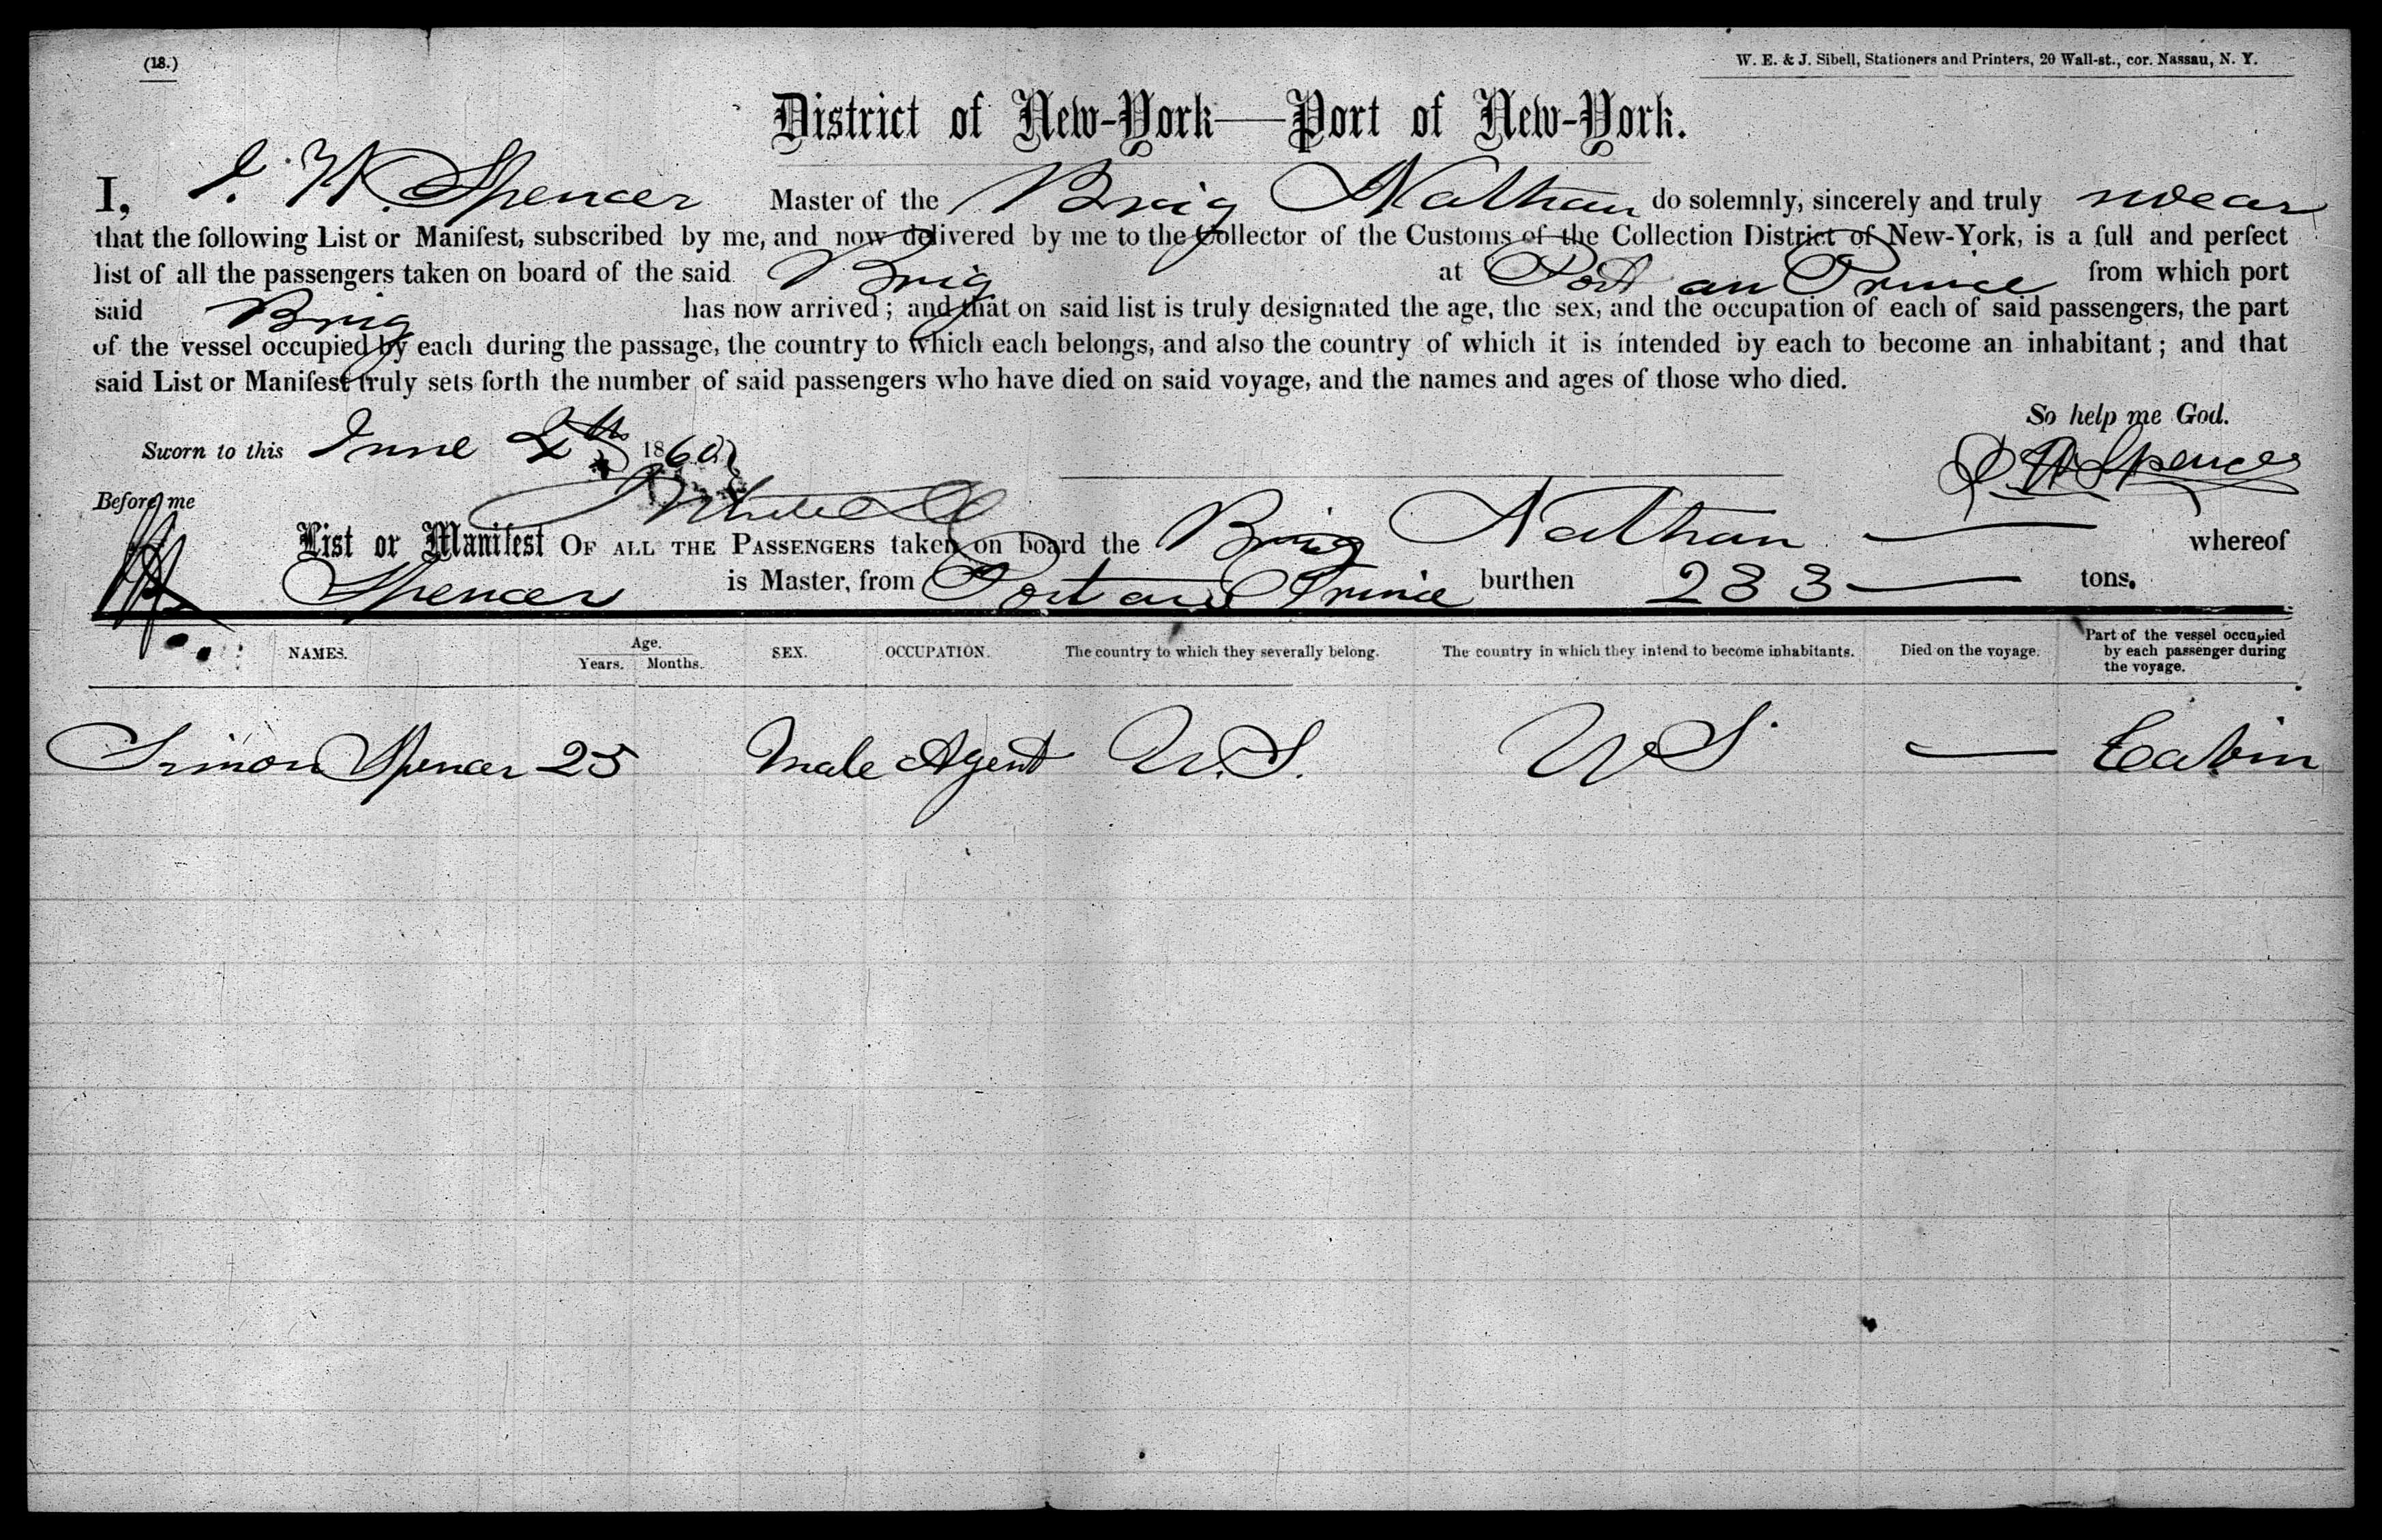 (18.)
W. E. & J. Sibell, Stationers and Printers, 20 Wall-st., cor. Nassau, N. Y.
District of New-York—Port of New-York.
I, J. W. Spencer Master of the Brig Nathan do solemnly, sincerely and truly swear
that the following List or Manifest, subscribed by me, and now delivered by me to the Collector of the Customs of the Collection District of New-York, is a full and perfect
list of all the passengers taken on board of the said Brig at Port au Prince from which port
said Brig has now arrived; and that on said list is truly designated the age, the sex, and the occupation of each of said passengers, the part
of the vessel occupied by each during the passage, the country to which each belongs, and also the country of which it is intended by each to become an inhabitant; and that
said List or Manifest truly sets forth the number of said passengers who have died on said voyage, and the names and ages of those who died.
So help me God.
Sworn to this June 1860 J W Spencer
Before me
List or Manifest OF ALL THE PASSENGERS taken on board the Brig Nathan — whereof
Spencer is Master, from Port au Prince burthen 233 — tons.
NAMES. Age. Years. Months. SEX. OCCUPATION. The country to which they severally belong. The country in which they intend to become inhabitants. Died on the voyage. Part of the vessel occupied by each passenger during the voyage.
Simon Spencer 25 Male Agent U.S. U S — Cabin